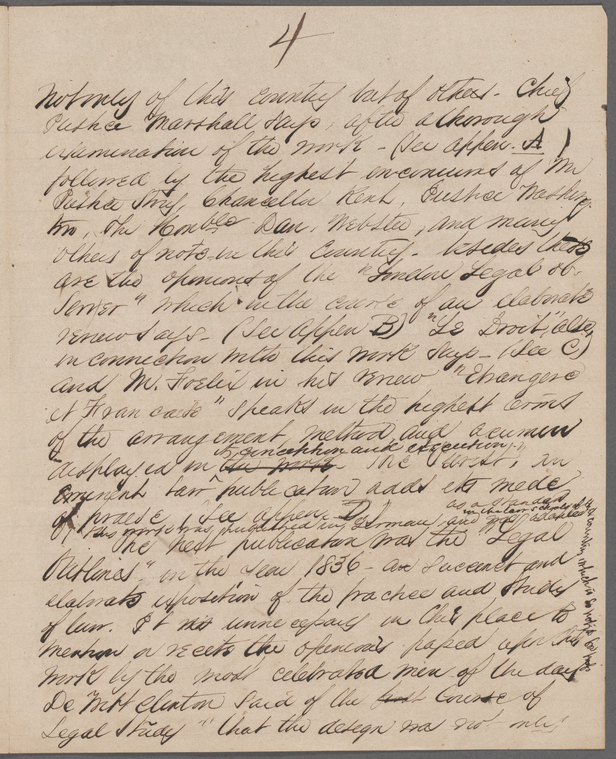 4
not only of this country but of others - Chief
Justice Marshall says, after a thorough
examination of the work - (See Appen. A)
followed by the highest encomiums of Mr
Justice Story, Chancellor Kent, Justice Washing
ton, the Honble Dan. Webster, and many
others of note in this Country - besides these
are the opinions of the "London Legal Ob-
server" which in the course of an elaborate
review says - (See Appen B) "Le Droit", also,
in connection with this work says - (See C)
and M. Foelix in his review "Etrangere
et Francaise" speaks in the highest terms
of the arrangement, method, and acumen
its conception and execution
displayed in the work. The        , an
eminent law publication adds its mede
of praise (See Appen D)
as a standard
in the law schools of
this work was published in Germany and was adopted
The next publication was the "Legal
Outlines" in the year 1836 - a succinct and
elaborate exposition of the practice and study
of law. It is unnecessary in this place to
mention or recite the opinions passed upon this
work by the most celebrated men of the day
De Witt Clinton said of the first Course of
Legal Study "that the design was not only